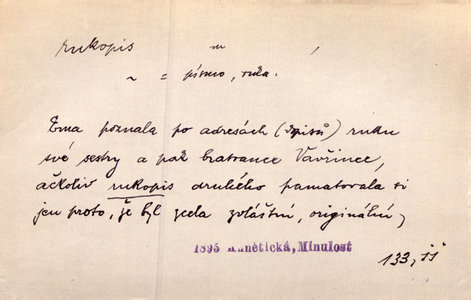 rukopis m
~ = písmo, ruka.
Ema poznala po adresách (dopisů) ruku
své sestry a pak bratrance Vavřince,
ačkoliv rukopis druhého pamatovala si
jen proto, že byl zcela zvláštní, originální,
1895 Kunětická, Minulost
133, ií